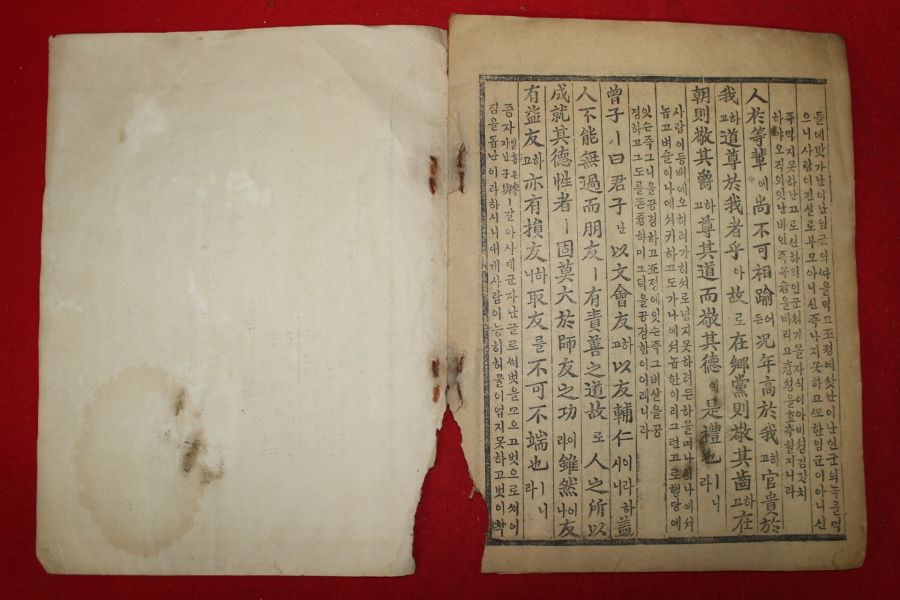 들에밧가난이난임군의따을먹고조정에찻난이난인군의녹을먹
으니사람이진실로부모아니신즉나지못하고또한임군이아니신
즉먹지못하난고로신하의인군섬기물자식이아비섬김갓치
하야오직의잇난바인즉목을바리고충성을효측할지니라
人於等輩에尙不可相踰든어況年高於我고하官貴於
我고하道尊於我者乎아故로在鄕黨則敬其齒고하在
朝則敬其爵고하尊其道而敬其德이是禮也라ㅣ니
사람이등배에오히려가히서로넘지못하려든하믈며나에서
놉고벼슬이나에서귀하고도가나에서놉한이리그런고로행당에
잇는즉그니을공경하고조정에잇는즉그벼살을공
경하고그도를존중하미그덕을공경함이이려니라
曾子ㅣ曰君子난以文會友고하以友輔仁이라하시니蓋
人不能無過而朋友ㅣ有責善之道故로人之所以
成就其德性者ㅣ固莫大於師友之功이라雖然이나友
有益友고하亦有損友니하取友를不可不端也라ㅣ니
증자ㅣ갈아사대군자난글로써벗을모으고벗으로셔어
짐을돕난이라하시니대개사람이능히허물이업지못하고벗이착